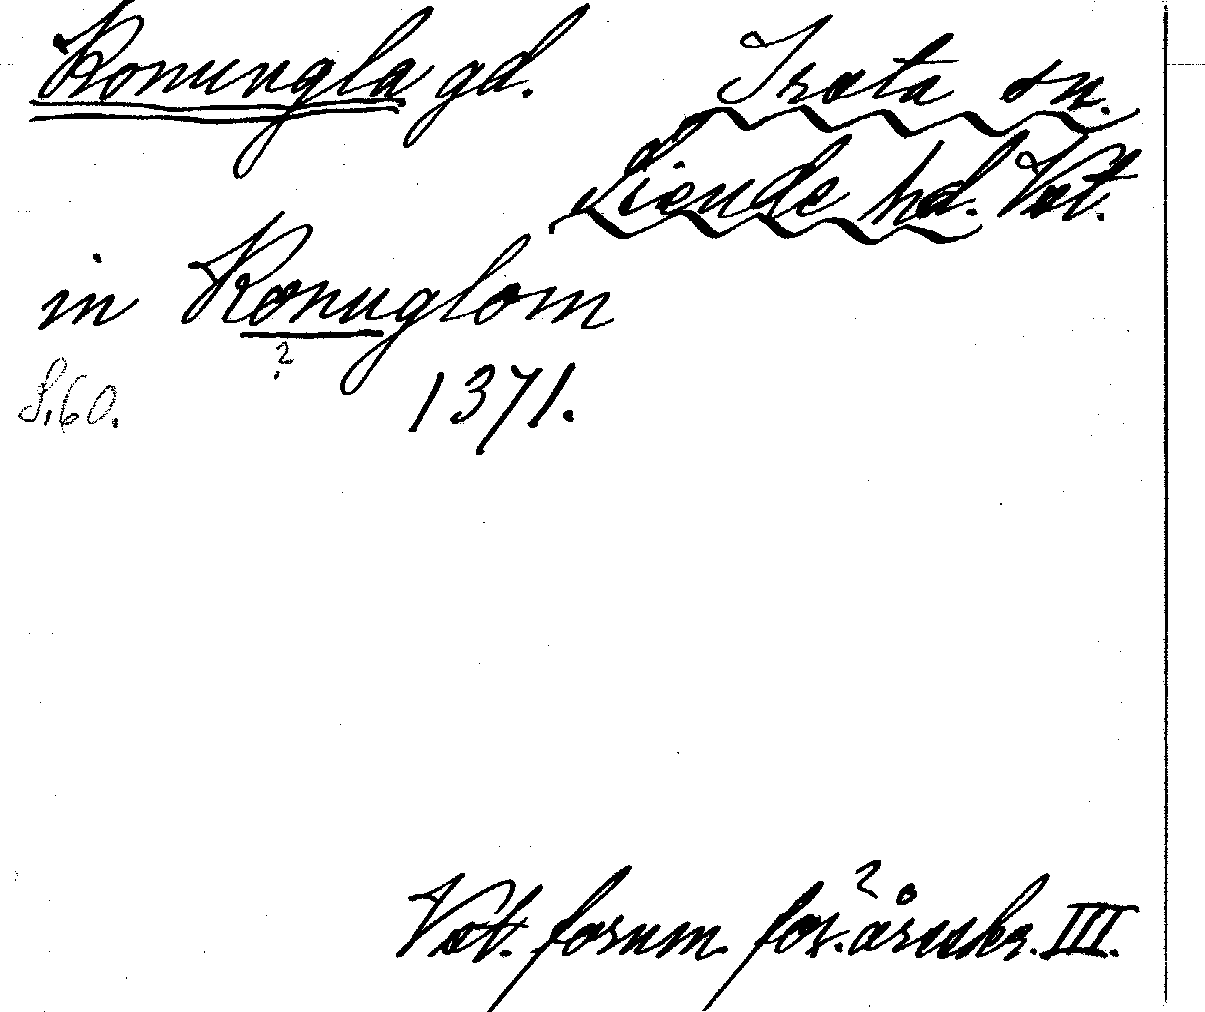 Konungla gd. Irsta sn.
Siende hd. Vst.
in Konuglom
?
S. 60. 1371.
Vst. fornm. för. årsskr. III.